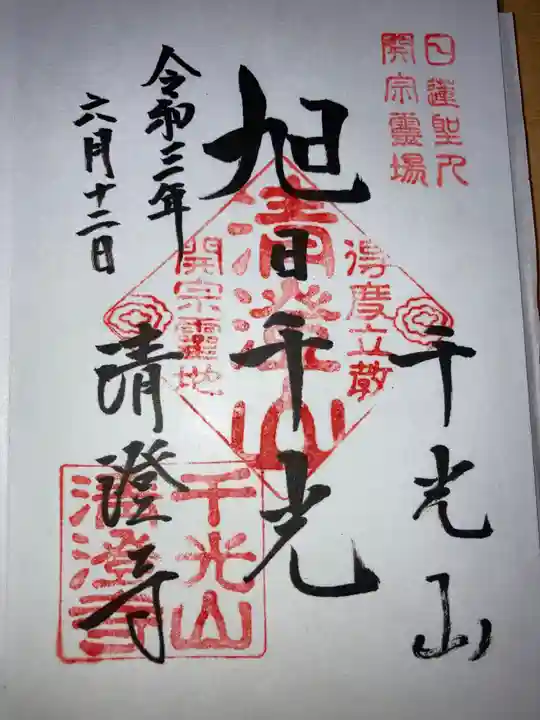 日蓮聖人
開宗霊場
千光山
旭日千光
清澄山
得度立教
開宗霊地
清澄寺
千光山
清澄寺
令和三年
六月十二日